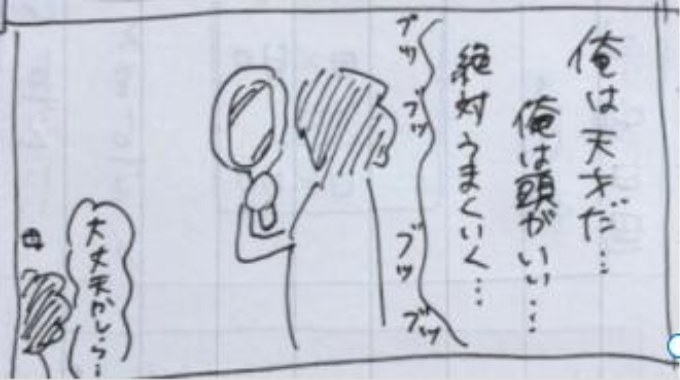 俺は天才だ…
俺は頭がいい…
絶対うまくいく…
ブツ
ブツ
ブツ
ブツ
大丈夫かしら…